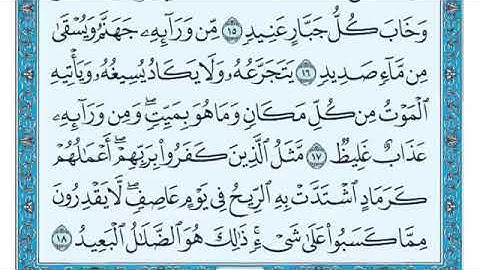 وَخَابَ كُلُّ جَبَّارٍ عَنِيدٍ ۝١٥ مِّن وَرَآئِهِۦ جَهَنَّمُ وَيُسْقَىٰ
مِن مَّآءٍ صَدِيدٍ ۝١٦ يَتَجَرَّعُهُۥ وَلَا يَكَادُ يُسِيغُهُۥ وَيَأْتِيهِ
ٱلْمَوْتُ مِن كُلِّ مَكَانٍ وَمَا هُوَ بِمَيِّتٍۖ وَمِن وَرَآئِهِۦ
عَذَابٌ غَلِيظٌ ۝١٧ مَّثَلُ ٱلَّذِينَ كَفَرُوا۟ بِرَبِّهِمْۖ أَعْمَٰلُهُمْ
كَرَمَادٍ ٱشْتَدَّتْ بِهِ ٱلرِّيحُ فِى يَوْمٍ عَاصِفٍۖ لَّا يَقْدِرُونَ
مِمَّا كَسَبُوا۟ عَلَىٰ شَىْءٍۚ ذَٰلِكَ هُوَ ٱلضَّلَٰلُ ٱلْبَعِيدُ ۝١٨